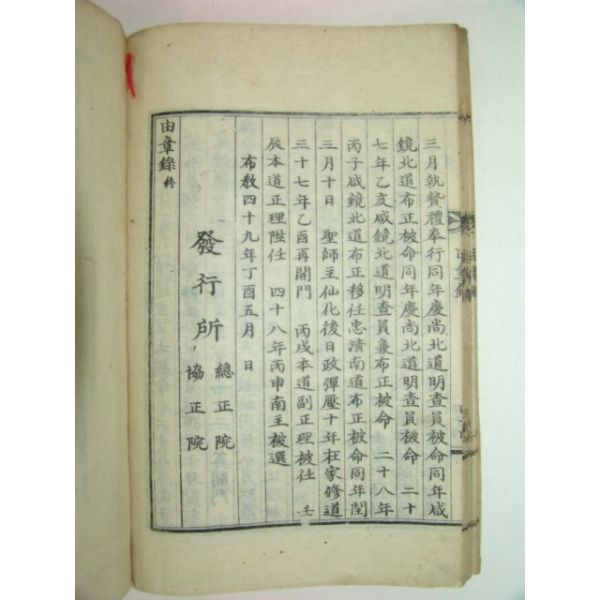 三月執贄禮奉行同年慶尚北道明査員被命同年咸
鏡北道布正被命同年慶尚北道明査員被命 二十
七年乙亥咸鏡北道明查員兼布正被命 二十八年
丙子咸鏡北道布正移任忠清南道布正被命同年閏
三月十日 聖師主仙化後日政彈壓十年在家修道
三十七年乙酉再開門 丙戌本道副正理被任 壬
辰本道正理陞任 四十八年丙申南主被選
布教四十九年丁酉五月 日
發行所
總正院
協正院
由章錄 終